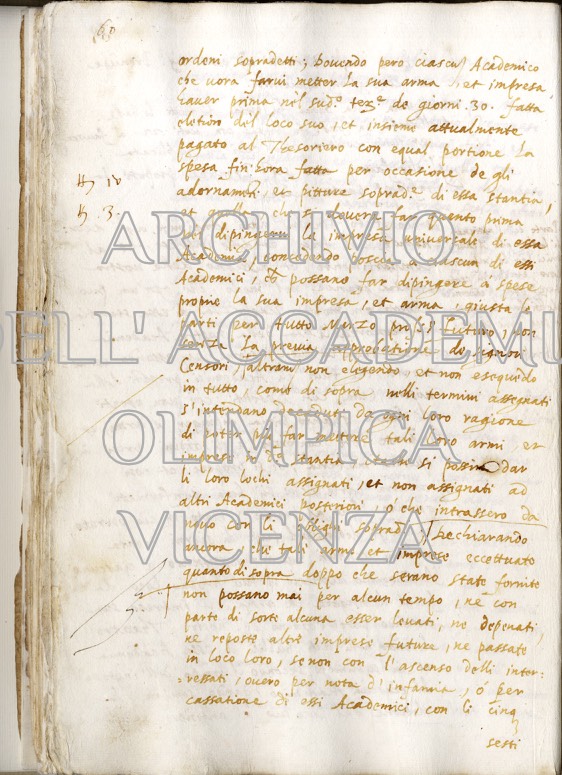 60
ordeni sopradetti; dovendo però ciascun Academico
che vorà farvi metter la sua arma, et impresa
haver prima nel sud.º de giorni .30. fatta
eletion del loco suo, et insieme attualmente
pagato al Thesoriero con equal portione la
spesa fin hora fatta per occasione de gli
adornamti, et pitture soprad.e di essa stantia,
et quella che si doverà far quanto prima
dipingervi la impresa universale di essa
Academia, concedendo poscia a ciascun di essi
Academici, che possano far dipingere a spese
proprie la sua impresa, et arma, giusta le
parti per tutto Marzo pross. futuro, non
senza la previa approbatione de signori
Censori, altram non elegendo, et non esequendo
in tutto, come di sopra nelli termini assegnati
s'intendano decaduti da ogni loro ragione
di poter più far mettere tali loro armi et
imprese in da stantia, et si possino dar
li loro lochi assignati, et non assignati ad
altri Academici posteriori, ò che intrassero da
novo con li soprad Dechiarando
ancora, che tali arme, et imprese eccettuato
quanto di sopra doppo che serano state fornite
non possano mai per alcun tempo, ne con
parte di sorte alcuna esser levati, ne depenati,
ne reposte altre imprese future, ne passate
in loco loro, se non con l'ascenso delli inter-
ressati, overo per nota d'infamia, ò per
cassatione di essi Academici, con li cinq
sesti
ARCHIVIO
DELL' ACCADEMIA
OLIMPICA
VICENZA